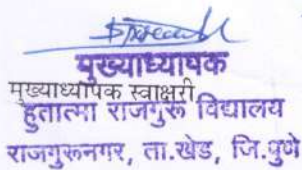 मुख्याध्यापक
मुख्याध्यापक स्वाक्षरी
हुतात्मा राजगुरू विद्यालय
राजगुरूनगर, ता.खेड, जि.पुणे